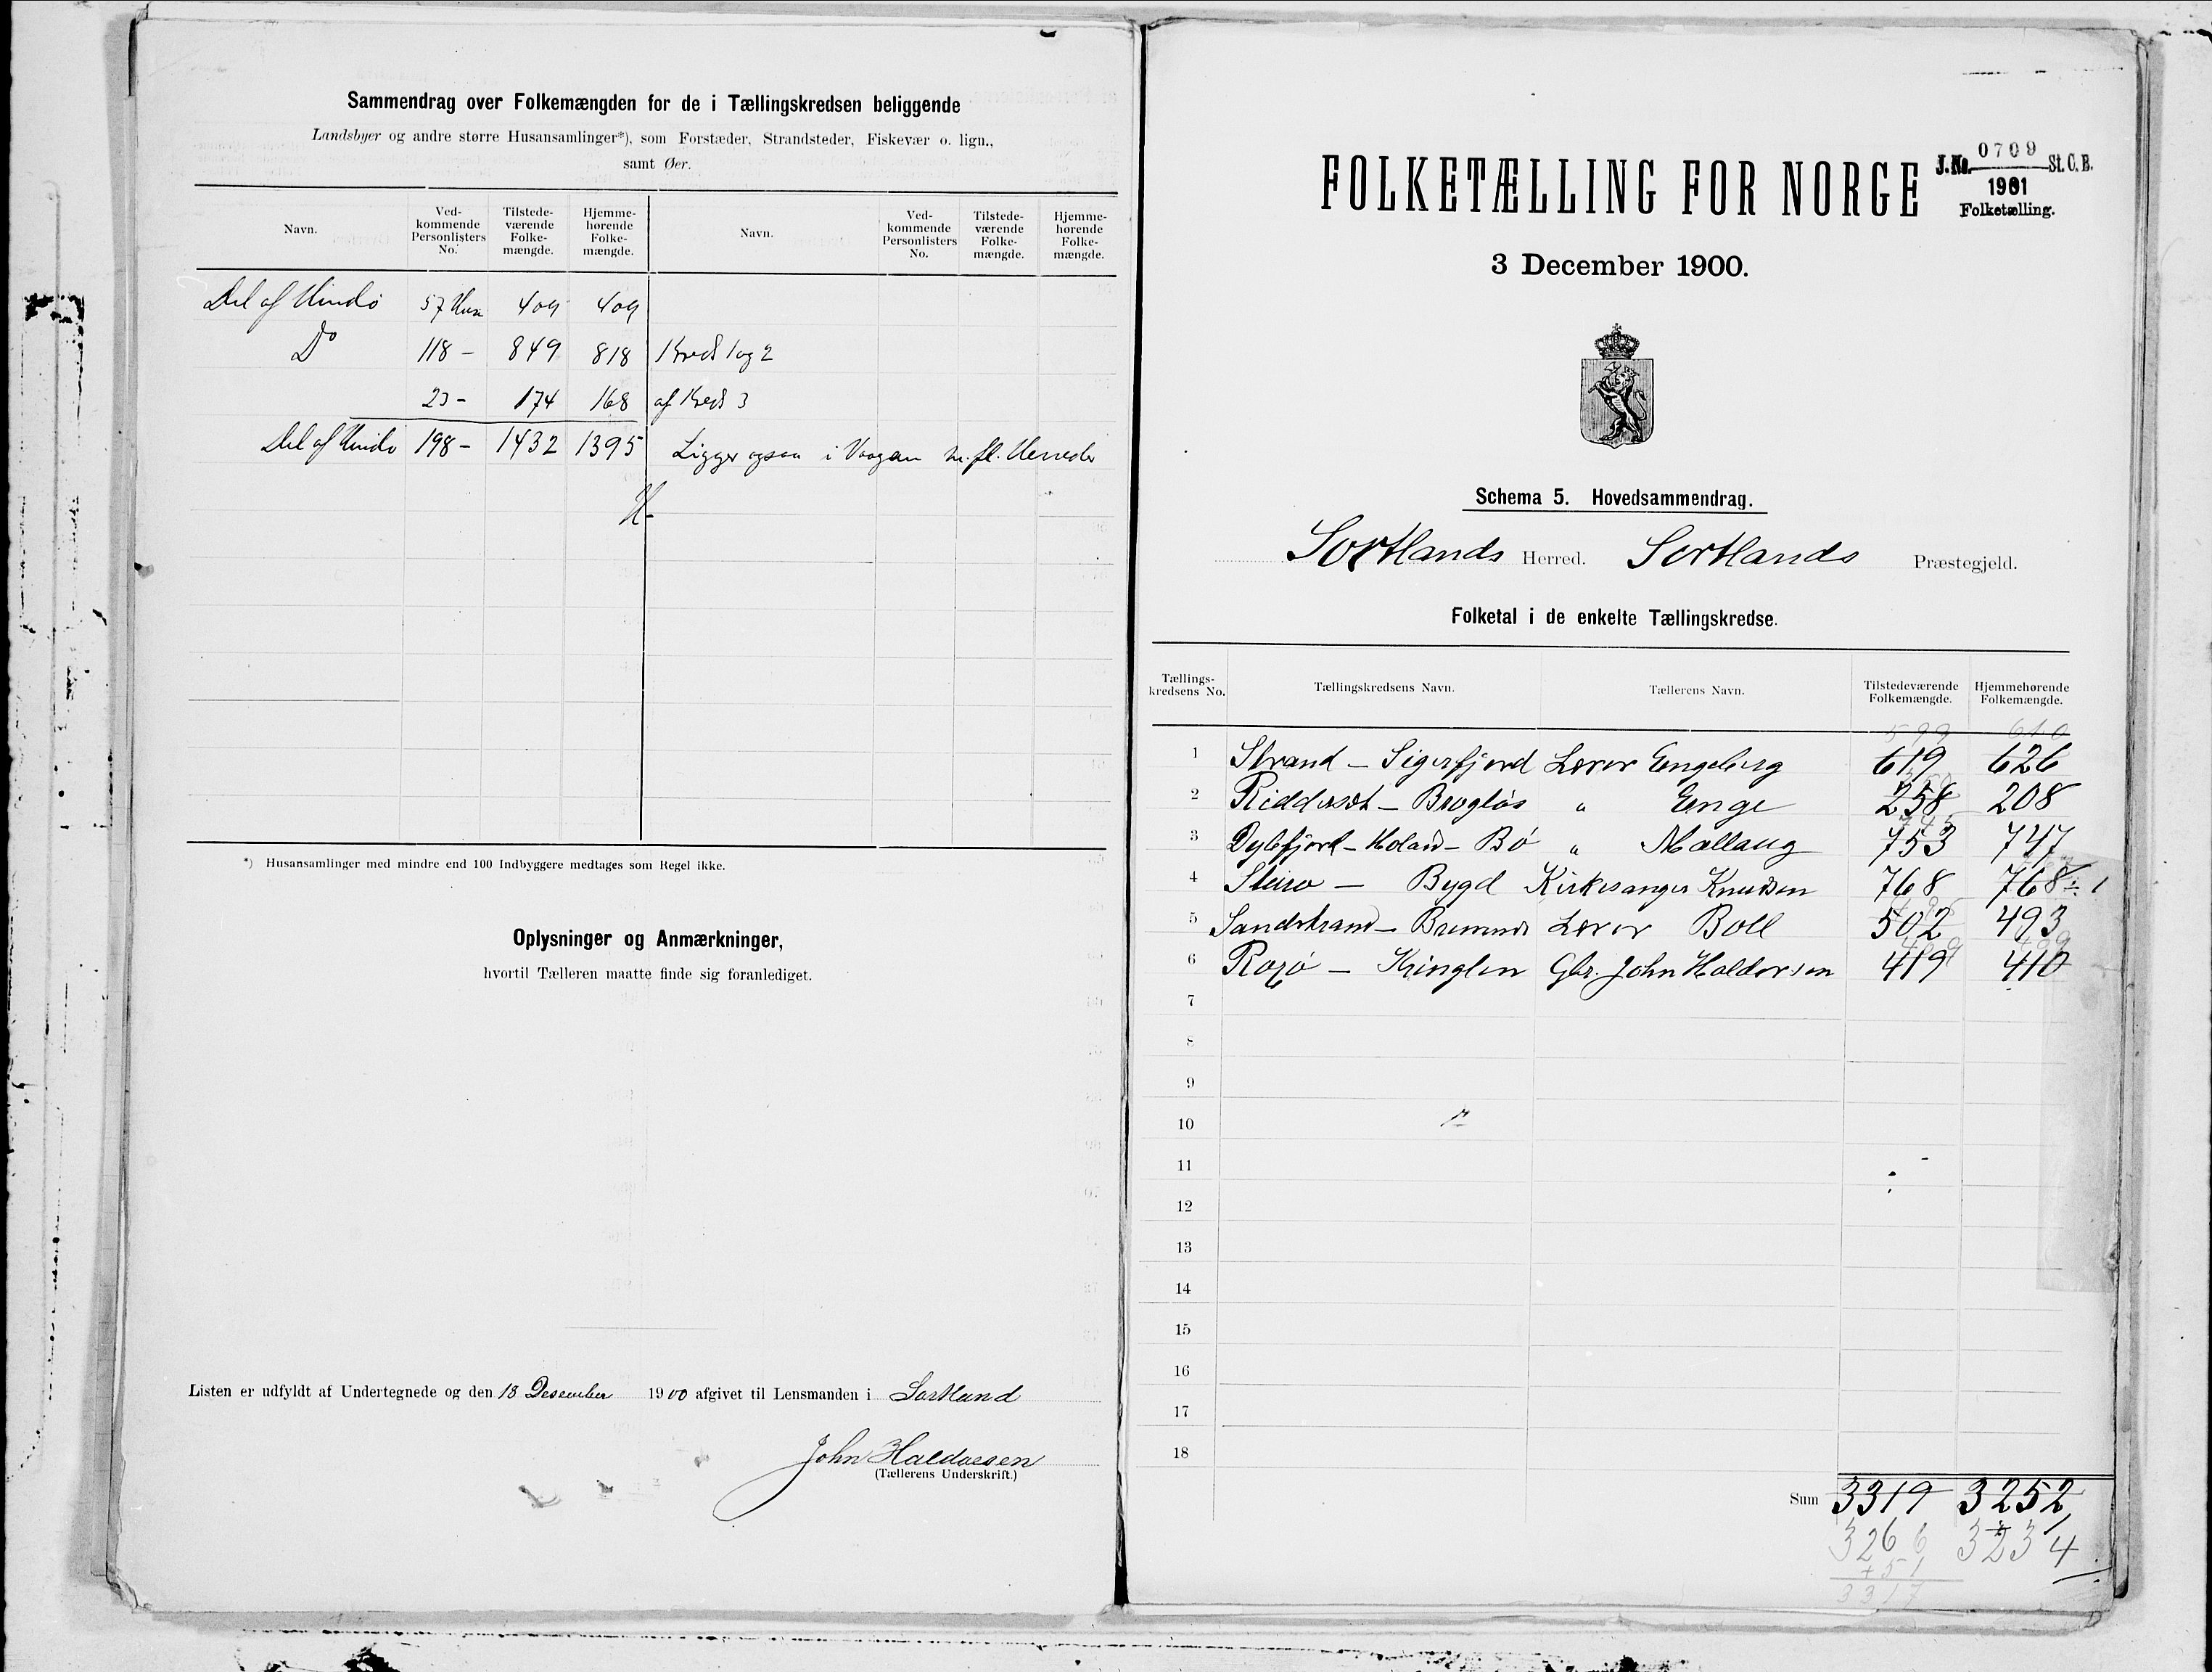 Sammendrag over Folkemængden for de i Tællingskredsen beliggende
Landsbyer og andre større Husansamlinger*), som Forstæder, Strandsteder, Fiskevær o. lign.,
samt Øer.
Navn. Ved-kommende Personlisters No. Tilstede-værende Folke-mængde. Hjemme-hørende Folke-mængde. Navn. Ved-kommende Personlisters No. Tilstede-værende Folke-mængde. Hjemme-hørende Folke-mængde.
Del af Hindø 57 Hus 409 409
Do 118 - 849 818 Kreds 1 og 2
23 - 174 168 af Kreds 3
Del af Hindø 198 - 1432 1395 Ligger ogsaa i Vaagan m. fl. Herreder
*) Husansamlinger med mindre end 100 Indbyggere medtages som Regel ikke.
Oplysninger og Anmærkninger,
hvortil Tælleren maatte finde sig foranlediget.
Listen er udfyldt af Undertegnede og den 18 Desember 1900 afgivet til Lensmanden i Sortland
John Haldorsen
(Tællerens Underskrift.)
FOLKETÆLLING FOR NORGE
J.No. 0709 St.C.B.
1901
Folketælling.
3 December 1900.
Schema 5. Hovedsammendrag.
Sortlands Herred. Sortlands Præstegjeld.
Folketal i de enkelte Tællingskredse.
Tællings-kredsens No. Tællingskredsens Navn. Tællerens Navn. Tilstedeværende Folkemængde. Hjemmehørende Folkemængde.
599 610
1 Strand - Sigerfjord Lærer Engeberg 619 626
2 - " Enge 258 208
3 - Holand - Bø " 753 747
4 Steiro - Bygd Kirkesanger Knudsen 768 768 ÷ 1
5 Sandstrand - Lærer Boll 502 493
6 - Kringlen Gbr. John Haldorsen 419 410
7
8
9
10
11
12
13
14
15
16
17
18
Sum 3319 3252
3266 3234
+ 51
3317